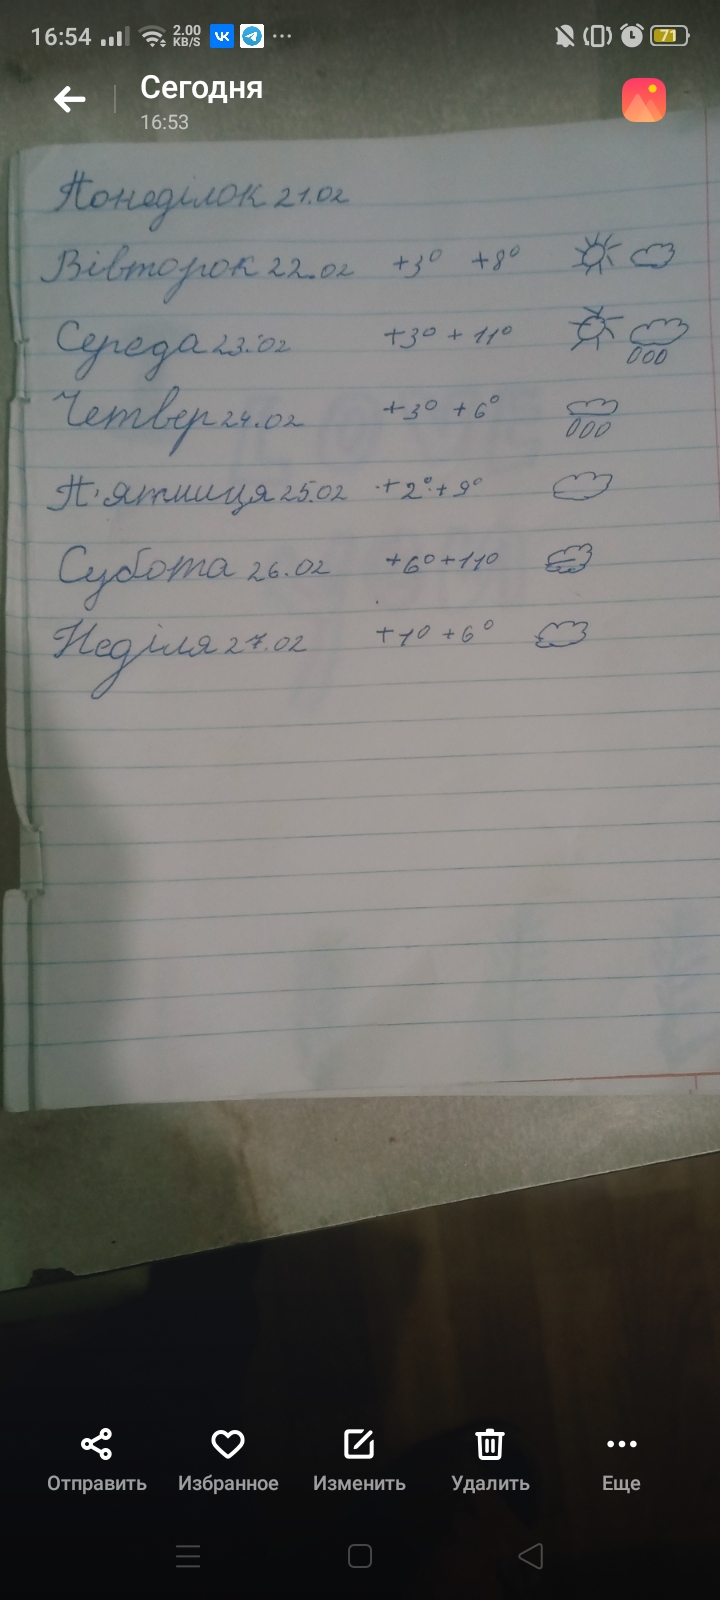 16:54 2.00 KB/S 71
Сегодня
16:53
Понеділок 21.02
Вівторок 22.02 +3° +8°
Середа 23.02 +3° + 11°
Четвер 24.02 +3° +6°
П'ятниця 25.02 +2° + 9°
Субота 26.02 +6° +11°
Неділя 27.02 +1° +6°
Отправить Избранное Изменить Удалить Еще